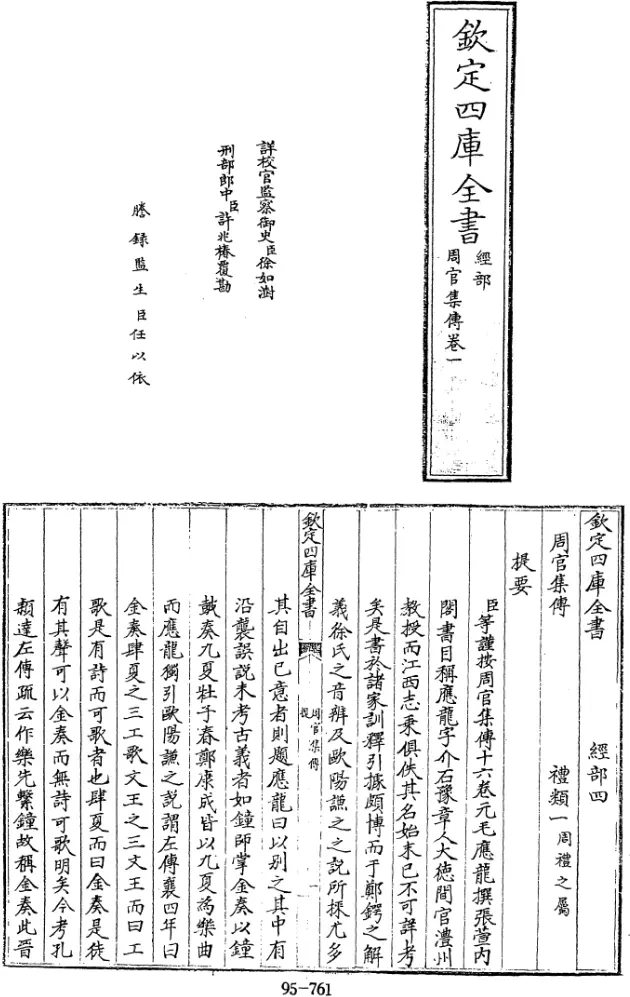 欽定四庫全書
經部
周官集傳卷一
詳校官監察御史臣徐如澍
刑部郎中臣許兆椿覆勘
謄錄監生臣任以依
欽定四庫全書 經部四
周官集傳 禮類一周禮之屬
提要
臣等謹按周官集傳十六卷元毛應龍撰張萱内
閣書目稱應龍字介石豫章人大德間官澧州
教授而江西志乘俱佚其名始末已不可詳考
矣是書於諸家訓釋引據頗博而于鄭鍔之解
義徐氏之音辨及歐陽謙之之説所採尤多
欽定四庫全書
周官集傳
提要
一
其自出己意者則題應龍曰以别之其中有
沿襲誤説未考古義者如鐘師掌金奏以鐘
鼓奏九夏杜子春鄭康成皆以九夏為樂曲
而應龍獨引歐陽謙之説謂左傳襄四年曰
金奏肆夏之三工歌文王之三文王而曰工
歌是有詩而可歌者也肆夏而曰金奏是徒
有其聲可以金奏而無詩可歌明矣今考孔
穎達左傳疏云作樂先擊鐘故稱金奏此晉
95-761